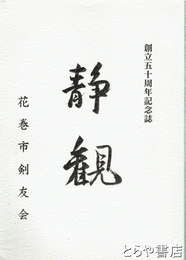 創立五十周年記念誌
静観
花巻市剣友会
とらや書店